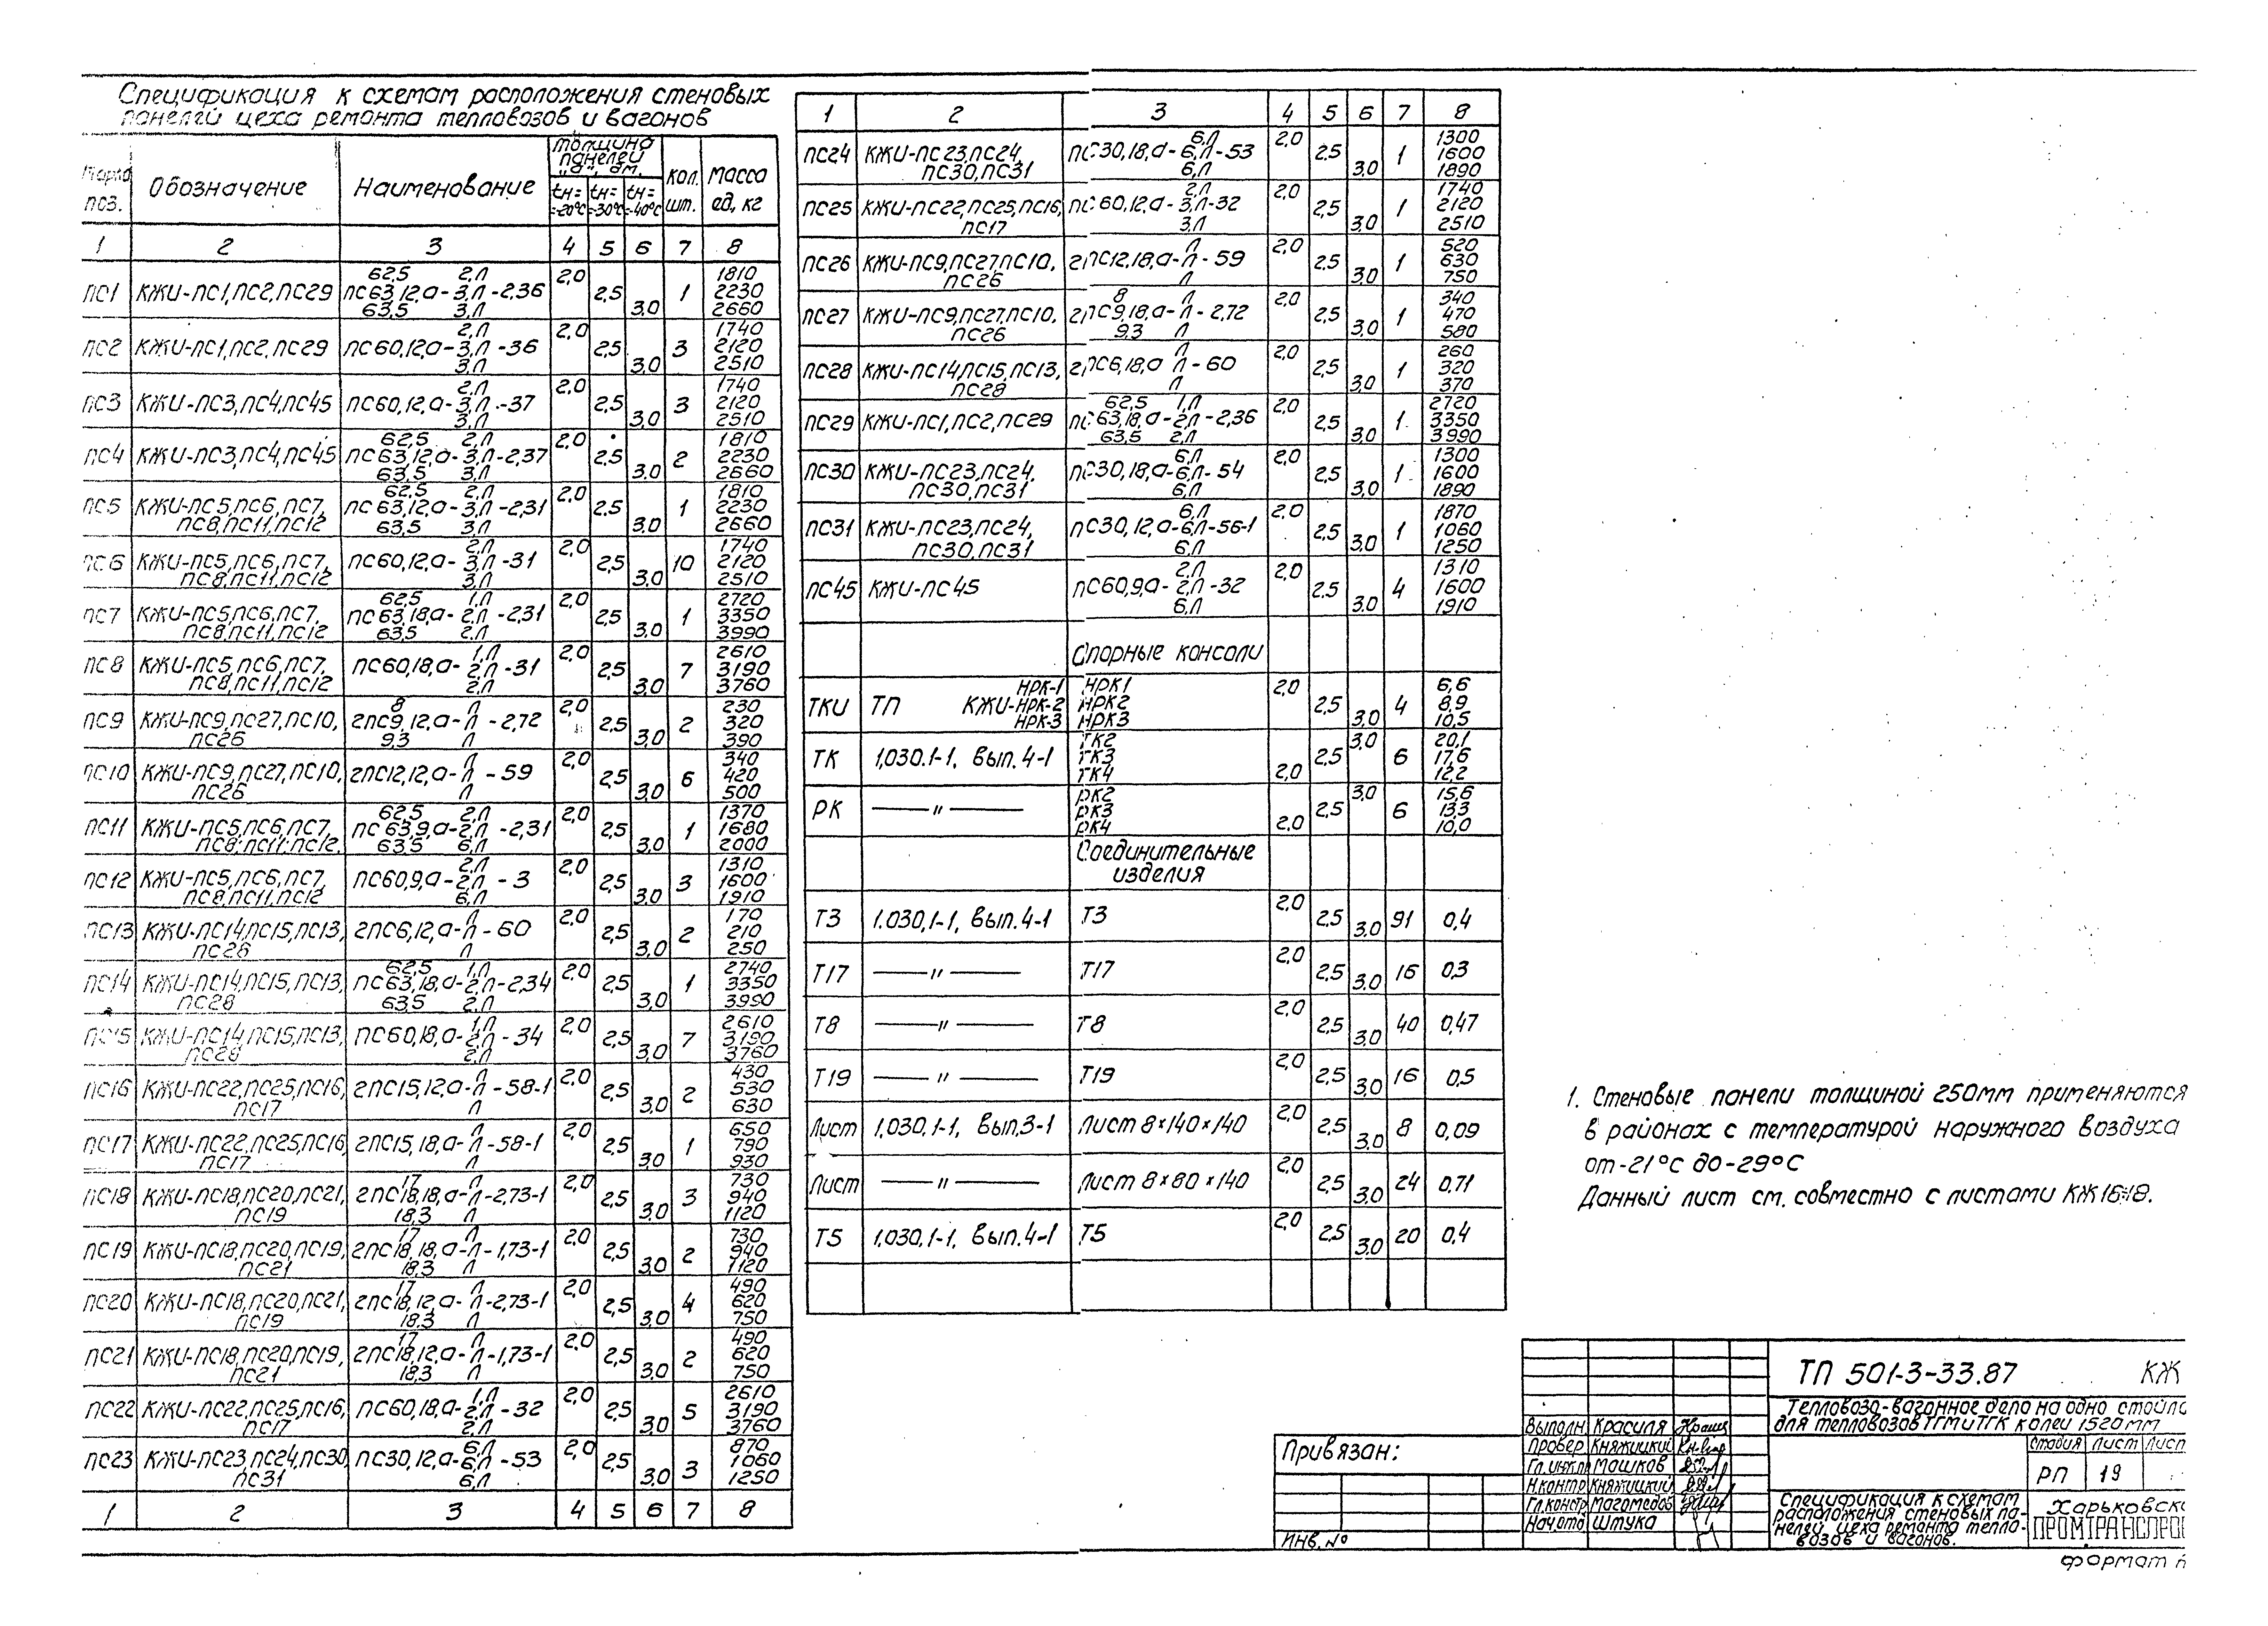 Спецификация к схемам расположения стеновых
панелей цеха ремонта тепловозов и вагонов
Марка поз. | Обозначение | Наименование | Толщина панелей "а", дм. tн=-20°С | tн=-30°С | tн=-40°С | кол. шт. | Масса ед, кг
1 | 2 | 3 | 4 | 5 | 6 | 7 | 8
ПС1 | КЖИ-ПС1,ПС2,ПС29 | 62,5 2,Л ПС63,12,а-3,Л-2,36 63,5 3,Л | 2,0 | 2,5 | 3,0 | 1 | 1810 2230 2660
ПС2 | КЖИ-ПС1,ПС2,ПС29 | 2,Л ПС60,12,а-3,Л-36 3,Л | 2,0 | 2,5 | 3,0 | 3 | 1740 2120 2510
ПС3 | КЖИ-ПС3,ПС4,ПС45 | 2,Л ПС60,12,а-3,Л-37 3,Л | 2,0 | 2,5 | 3,0 | 3 | 1740 2120 2510
ПС4 | КЖИ-ПС3,ПС4,ПС45 | 62,5 2,Л ПС63,12,а-3,Л-2,37 63,5 3,Л | 2,0 | 2,5 | 3,0 | 2 | 1810 2230 2660
ПС5 | КЖИ-ПС5,ПС6,ПС7, ПС8,ПС11,ПС12 | 62,5 2,Л ПС63,12,а-3,Л-2,31 63,5 3,Л | 2,0 | 2,5 | 3,0 | 1 | 1810 2230 2660
ПС6 | КЖИ-ПС5,ПС6,ПС7, ПС8,ПС11,ПС12 | 2,Л ПС60,12,а-3,Л-31 3,Л | 2,0 | 2,5 | 3,0 | 10 | 1740 2120 2510
ПС7 | КЖИ-ПС5,ПС6,ПС7, ПС8,ПС11,ПС12 | 62,5 1,Л ПС63,18,а-2,Л-2,31 63,5 2,Л | 2,0 | 2,5 | 3,0 | 1 | 2720 3350 3990
ПС8 | КЖИ-ПС5,ПС6,ПС7, ПС8,ПС11,ПС12 | 1,Л ПС60,18,а-2,Л-31 2,Л | 2,0 | 2,5 | 3,0 | 7 | 2610 3190 3760
ПС9 | КЖИ-ПС9,ПС27,ПС10, ПС26 | 8 Л 2ПС9,12,а-Л-2,72 9,3 Л | 2,0 | 2,5 | 3,0 | 2 | 230 320 390
ПС10 | КЖИ-ПС9,ПС27,ПС10, ПС26 | Л 2ПС12,12,а-Л-59 Л | 2,0 | 2,5 | 3,0 | 6 | 340 420 500
ПС11 | КЖИ-ПС5,ПС6,ПС7, ПС8,ПС11,ПС12. | 62,5 2,Л ПС63,9,а-2,Л-2,31 63,5 6,Л | 2,0 | 2,5 | 3,0 | 1 | 1370 1680 2000
ПС12 | КЖИ-ПС5,ПС6,ПС7, ПС8,ПС11,ПС12 | 2,Л ПС60,9,а-2,Л-3 6,Л | 2,0 | 2,5 | 3,0 | 3 | 1310 1600 1910
ПС13 | КЖИ-ПС14,ПС15,ПС13, ПС28 | Л 2ПС6,12,а-Л-60 Л | 2,0 | 2,5 | 3,0 | 2 | 170 210 250
ПС14 | КЖИ-ПС14,ПС15,ПС13, ПС28 | 62,5 1,Л ПС63,18,а-2,Л-2,34 63,5 2,Л | 2,0 | 2,5 | 3,0 | 1 | 2740 3350 3990
ПС15 | КЖИ-ПС14,ПС15,ПС13, ПС28 | 1,Л ПС60,18,а-2,Л-34 2,Л | 2,0 | 2,5 | 3,0 | 7 | 2610 3190 3760
ПС16 | КЖИ-ПС22,ПС25,ПС16, ПС17 | Л 2ПС15,12,а-Л-58-1 Л | 2,0 | 2,5 | 3,0 | 2 | 430 530 630
ПС17 | КЖИ-ПС22,ПС25,ПС16 ПС17 | Л 2ПС15,18,а-Л-58-1 Л | 2,0 | 2,5 | 3,0 | 1 | 650 790 930
ПС18 | КЖИ-ПС18,ПС20,ПС21, ПС19 | 17 Л 2ПС18,18,а-Л-2,73-1 18,3 Л | 2,0 | 2,5 | 3,0 | 3 | 730 940 1120
ПС19 | КЖИ-ПС18,ПС20,ПС19, ПС21 | 17 Л 2ПС18,18,а-Л-1,73-1 18,3 Л | 2,0 | 2,5 | 3,0 | 2 | 730 940 1120
ПС20 | КЖИ-ПС18,ПС20,ПС21, ПС19 | 17 Л 2ПС18,12,а-Л-2,73-1 18,3 Л | 2,0 | 2,5 | 3,0 | 4 | 490 620 750
ПС21 | КЖИ-ПС18,ПС20,ПС19, ПС21 | 17 Л 2ПС18,12,а-Л-1,73-1 18,3 Л | 2,0 | 2,5 | 3,0 | 2 | 490 620 750
ПС22 | КЖИ-ПС22,ПС25,ПС16, ПС17 | 1,Л ПС60,18,а-2,Л-32 2,Л | 2,0 | 2,5 | 3,0 | 5 | 2610 3190 3760
ПС23 | КЖИ-ПС23,ПС24,ПС30, ПС31 | 6,Л ПС30,12,а-6,Л-53 6,Л | 2,0 | 2,5 | 3,0 | 3 | 870 1060 1250
1 | 2 | 3 | 4 | 5 | 6 | 7 | 8
1 | 2 | 3 | 4 | 5 | 6 | 7 | 8
ПС24 | КЖИ-ПС23,ПС24, ПС30,ПС31 | 6,Л ПС30,18,а-6,Л-53 6,Л | 2,0 | 2,5 | 3,0 | 1 | 1300 1600 1890
ПС25 | КЖИ-ПС22,ПС25,ПС16, ПС17 | 2,Л ПС60,12,а-3,Л-32 3,Л | 2,0 | 2,5 | 3,0 | 1 | 1740 2120 2510
ПС26 | КЖИ-ПС9,ПС27,ПС10, ПС26 | Л 2ПС12,18,а-Л-59 Л | 2,0 | 2,5 | 3,0 | 1 | 520 630 750
ПС27 | КЖИ-ПС9,ПС27,ПС10, ПС26 | 8 Л 2ПС9,18,а-Л-2,72 9,3 Л | 2,0 | 2,5 | 3,0 | 1 | 340 470 580
ПС28 | КЖИ-ПС14,ПС15,ПС13, ПС28 | Л 2ПС6,18,а Л-60 Л | 2,0 | 2,5 | 3,0 | 1 | 260 320 370
ПС29 | КЖИ-ПС1,ПС2,ПС29 | 62,5 1,Л ПС63,18,а-2,Л-2,36 63,5 2,Л | 2,0 | 2,5 | 3,0 | 1 | 2720 3350 3990
ПС30 | КЖИ-ПС23,ПС24, ПС30,ПС31 | 6,Л ПС30,18,а-6,Л-54 6,Л | 2,0 | 2,5 | 3,0 | 1 | 1300 1600 1890
ПС31 | КЖИ-ПС23,ПС24, ПС30,ПС31 | 6,Л ПС30,12,а-6,Л-56-1 6,Л | 2,0 | 2,5 | 3,0 | 1 | 1870 1060 1250
ПС45 | КЖИ-ПС45 | 2,Л ПС60,9,а-2,Л-32 6,Л | 2,0 | 2,5 | 3,0 | 4 | 1310 1600 1910
Опорные консоли
ТКИ | ТП КЖИ-НРК-1 НРК-2 НРК-3 | НРК1 НРК2 НРК3 | 2,0 | 2,5 | 3,0 | 4 | 6,6 8,9 10,5
ТК | 1,030.1-1, Вып.4-1 | ТК2 ТК3 ТК4 | 2,0 | 2,5 | 3,0 | 6 | 20,1 17,6 12,2
РК | —"— | РК2 РК3 РК4 | 2,0 | 2,5 | 3,0 | 6 | 15,6 13,3 10,0
Соединительные
изделия
Т3 | 1.030,1-1, Вып.4-1 | Т3 | 2,0 | 2,5 | 3,0 | 91 | 0,4
Т17 | —"— | Т17 | 2,0 | 2,5 | 3,0 | 16 | 0,3
Т8 | —"— | Т8 | 2,0 | 2,5 | 3,0 | 40 | 0,47
Т19 | —"— | Т19 | 2,0 | 2,5 | 3,0 | 16 | 0,5
Лист | 1,030,1-1, Вып,3-1 | Лист 8×140×140 | 2,0 | 2,5 | 3,0 | 8 | 0,09
Лист | —"— | Лист 8×80×140 | 2,0 | 2,5 | 3,0 | 24 | 0.71
Т5 | 1,030,1-1, Вып.4-1 | Т5 | 2,0 | 2,5 | 3,0 | 20 | 0,4
1. Стеновые панели толщиной 250мм применяются
в районах с температурой наружного воздуха
от -21°С до -29°С
Данный лист см. совместно с листами КЖ16÷18.
Привязан:
ИНВ. №
Выполн Красиля
Провер Княжицкий
Гл.инж.п Машков
Н.контр Княжицкий
Гл.констр Магомедов
Нач.отд Штука
ТП 501-3-33.87 КЖ
Тепловозо-вагонное депо на одно стойло
для тепловозов ТГМ и ТГК колеи 1520мм
Стадия Лист Лист
РП 19
Спецификация к схемам
расположения стеновых па-
нелей цеха ремонта тепло-
возов и вагонов.
Харьковск
ПРОМТРАНСПРО
формат